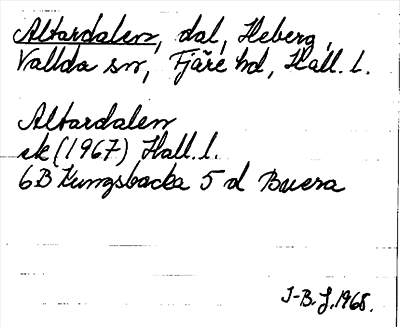 Altardalen, dal, Heberg,
Vallda sn, Fjäre hd, Hall. l.
Altardalen
ek (1967) Hall. l.
6B Kungsbacka 5 d Buera
I-B. J. 1968.